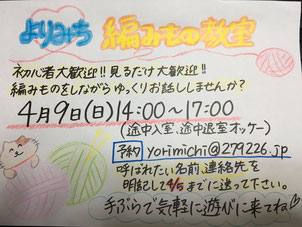 よりみち 編みもの教室
初心者大歓迎!!見るだけ大歓迎!!
編みものをしながらゆっくりお話しませんか?
4月9日(日)14:00~17:00
(途中入室、途中退室オッケー)
予約 yorimichi@279226.jp
呼ばれたい名前、連絡先を
明記して4/5までに送って下さい。
手ぶらで気軽に遊びに来てね